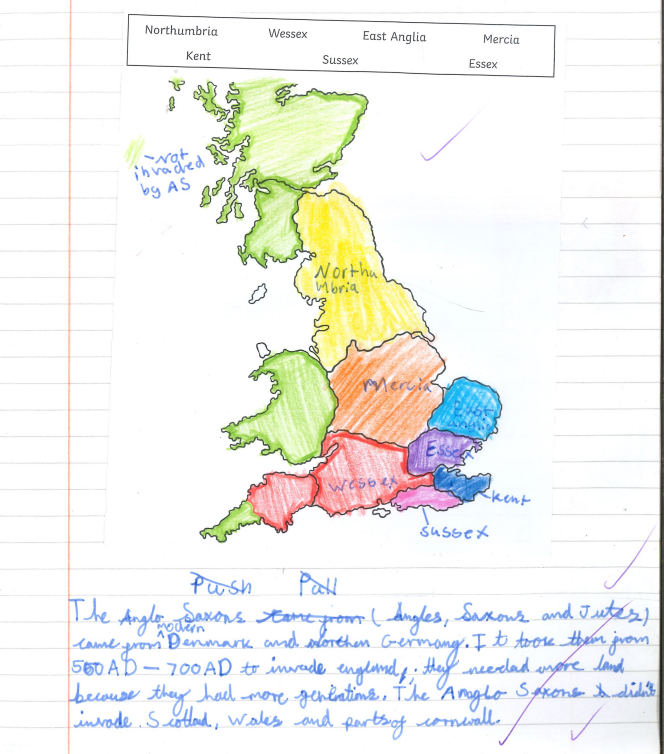 Northumbria Wessex East Anglia Mercia
Kent Sussex Essex
not
invaded
by AS
Northu
mbria
Mercia
East
Essex
Wessex
Kent
Sussex
Push Pull
The Anglo Saxons came from (Angles, Saxons and Jutes)
modern
came from Denmark and northen Germany. It took them from
500AD - 700AD to invade england, they needed more land
because they had more genrations. The Anaglo Saxons didn't
invade Scotland, Wales and parts of cornwall.